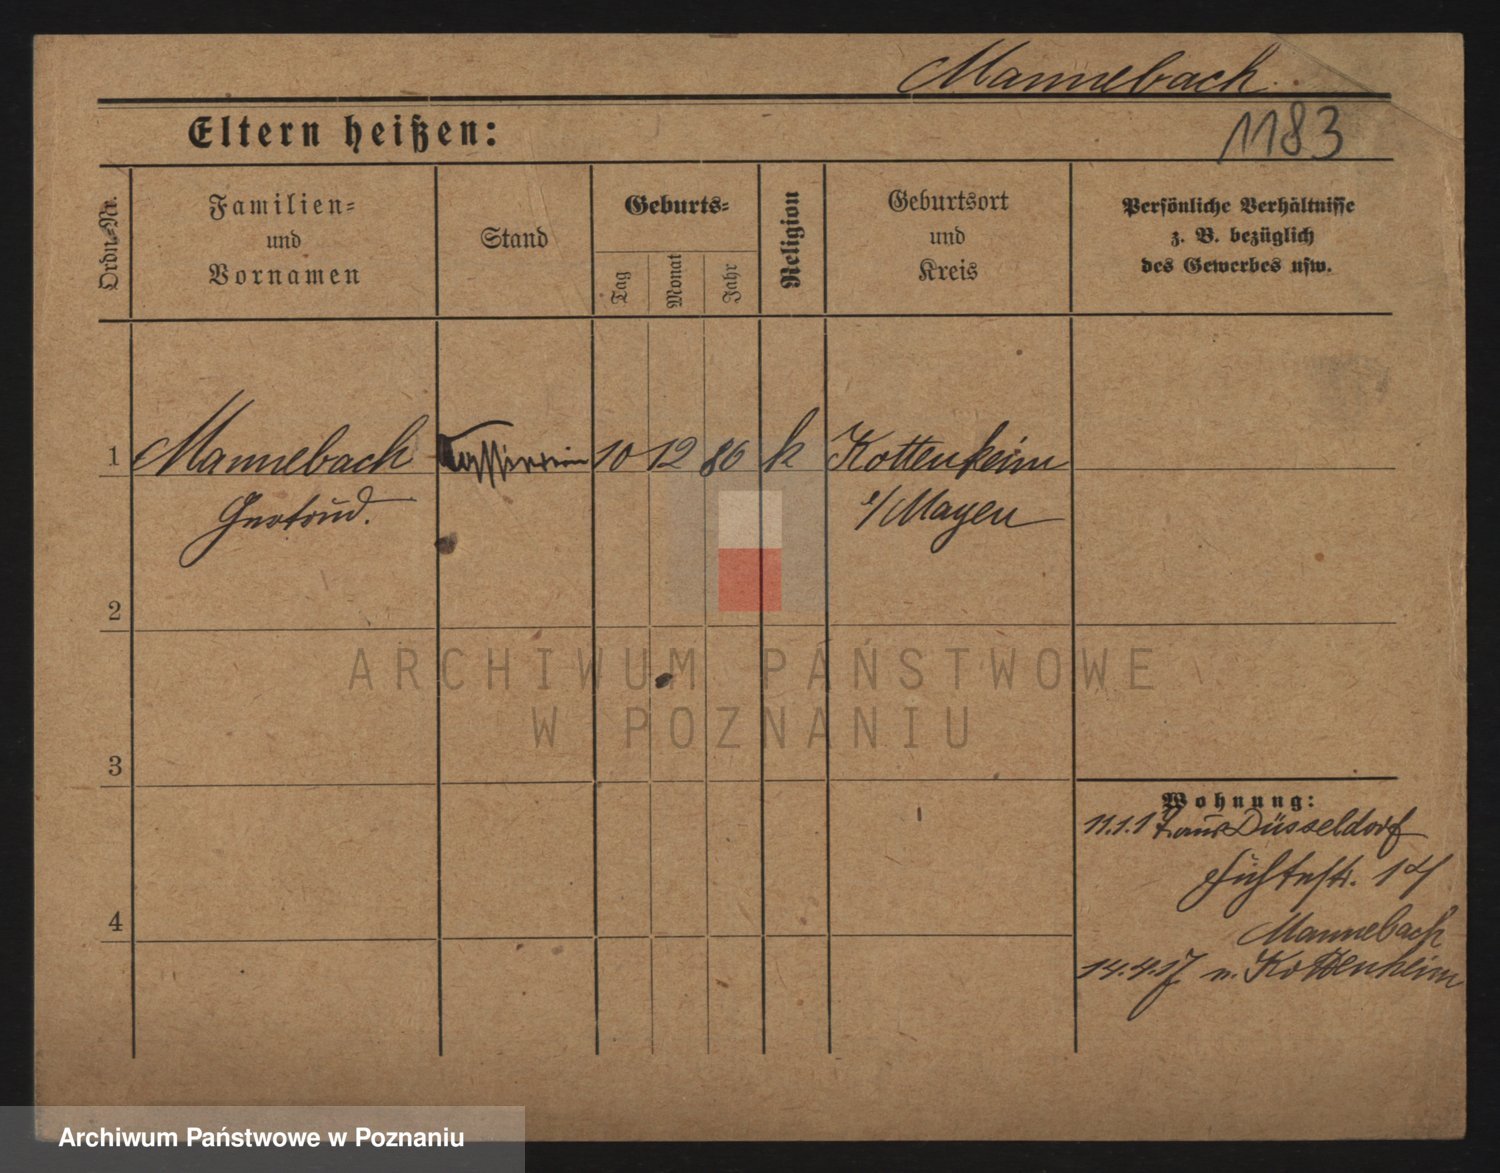 Mannebach
Eltern heißen:
1183
Ordn.-Nr.
Familien-
und
Vornamen
Stand
Geburts-
Tag
Monat
Jahr
Religion
Geburtsort
und
Kreis
Persönliche Verhältnisse
z. B. bezüglich
des Gewerbes usw.
1 Mannebach Kassiererin 10 12 86 k Kottenheim
Gertrud. /Mayen
2
3
4
Wohnung:
11.1.17 aus Düsseldorf
Mannebach
14.4.17 n. Kottenheim
ARCHIWUM PAŃSTWOWE
W POZNANIU
Archiwum Państwowe w Poznaniu